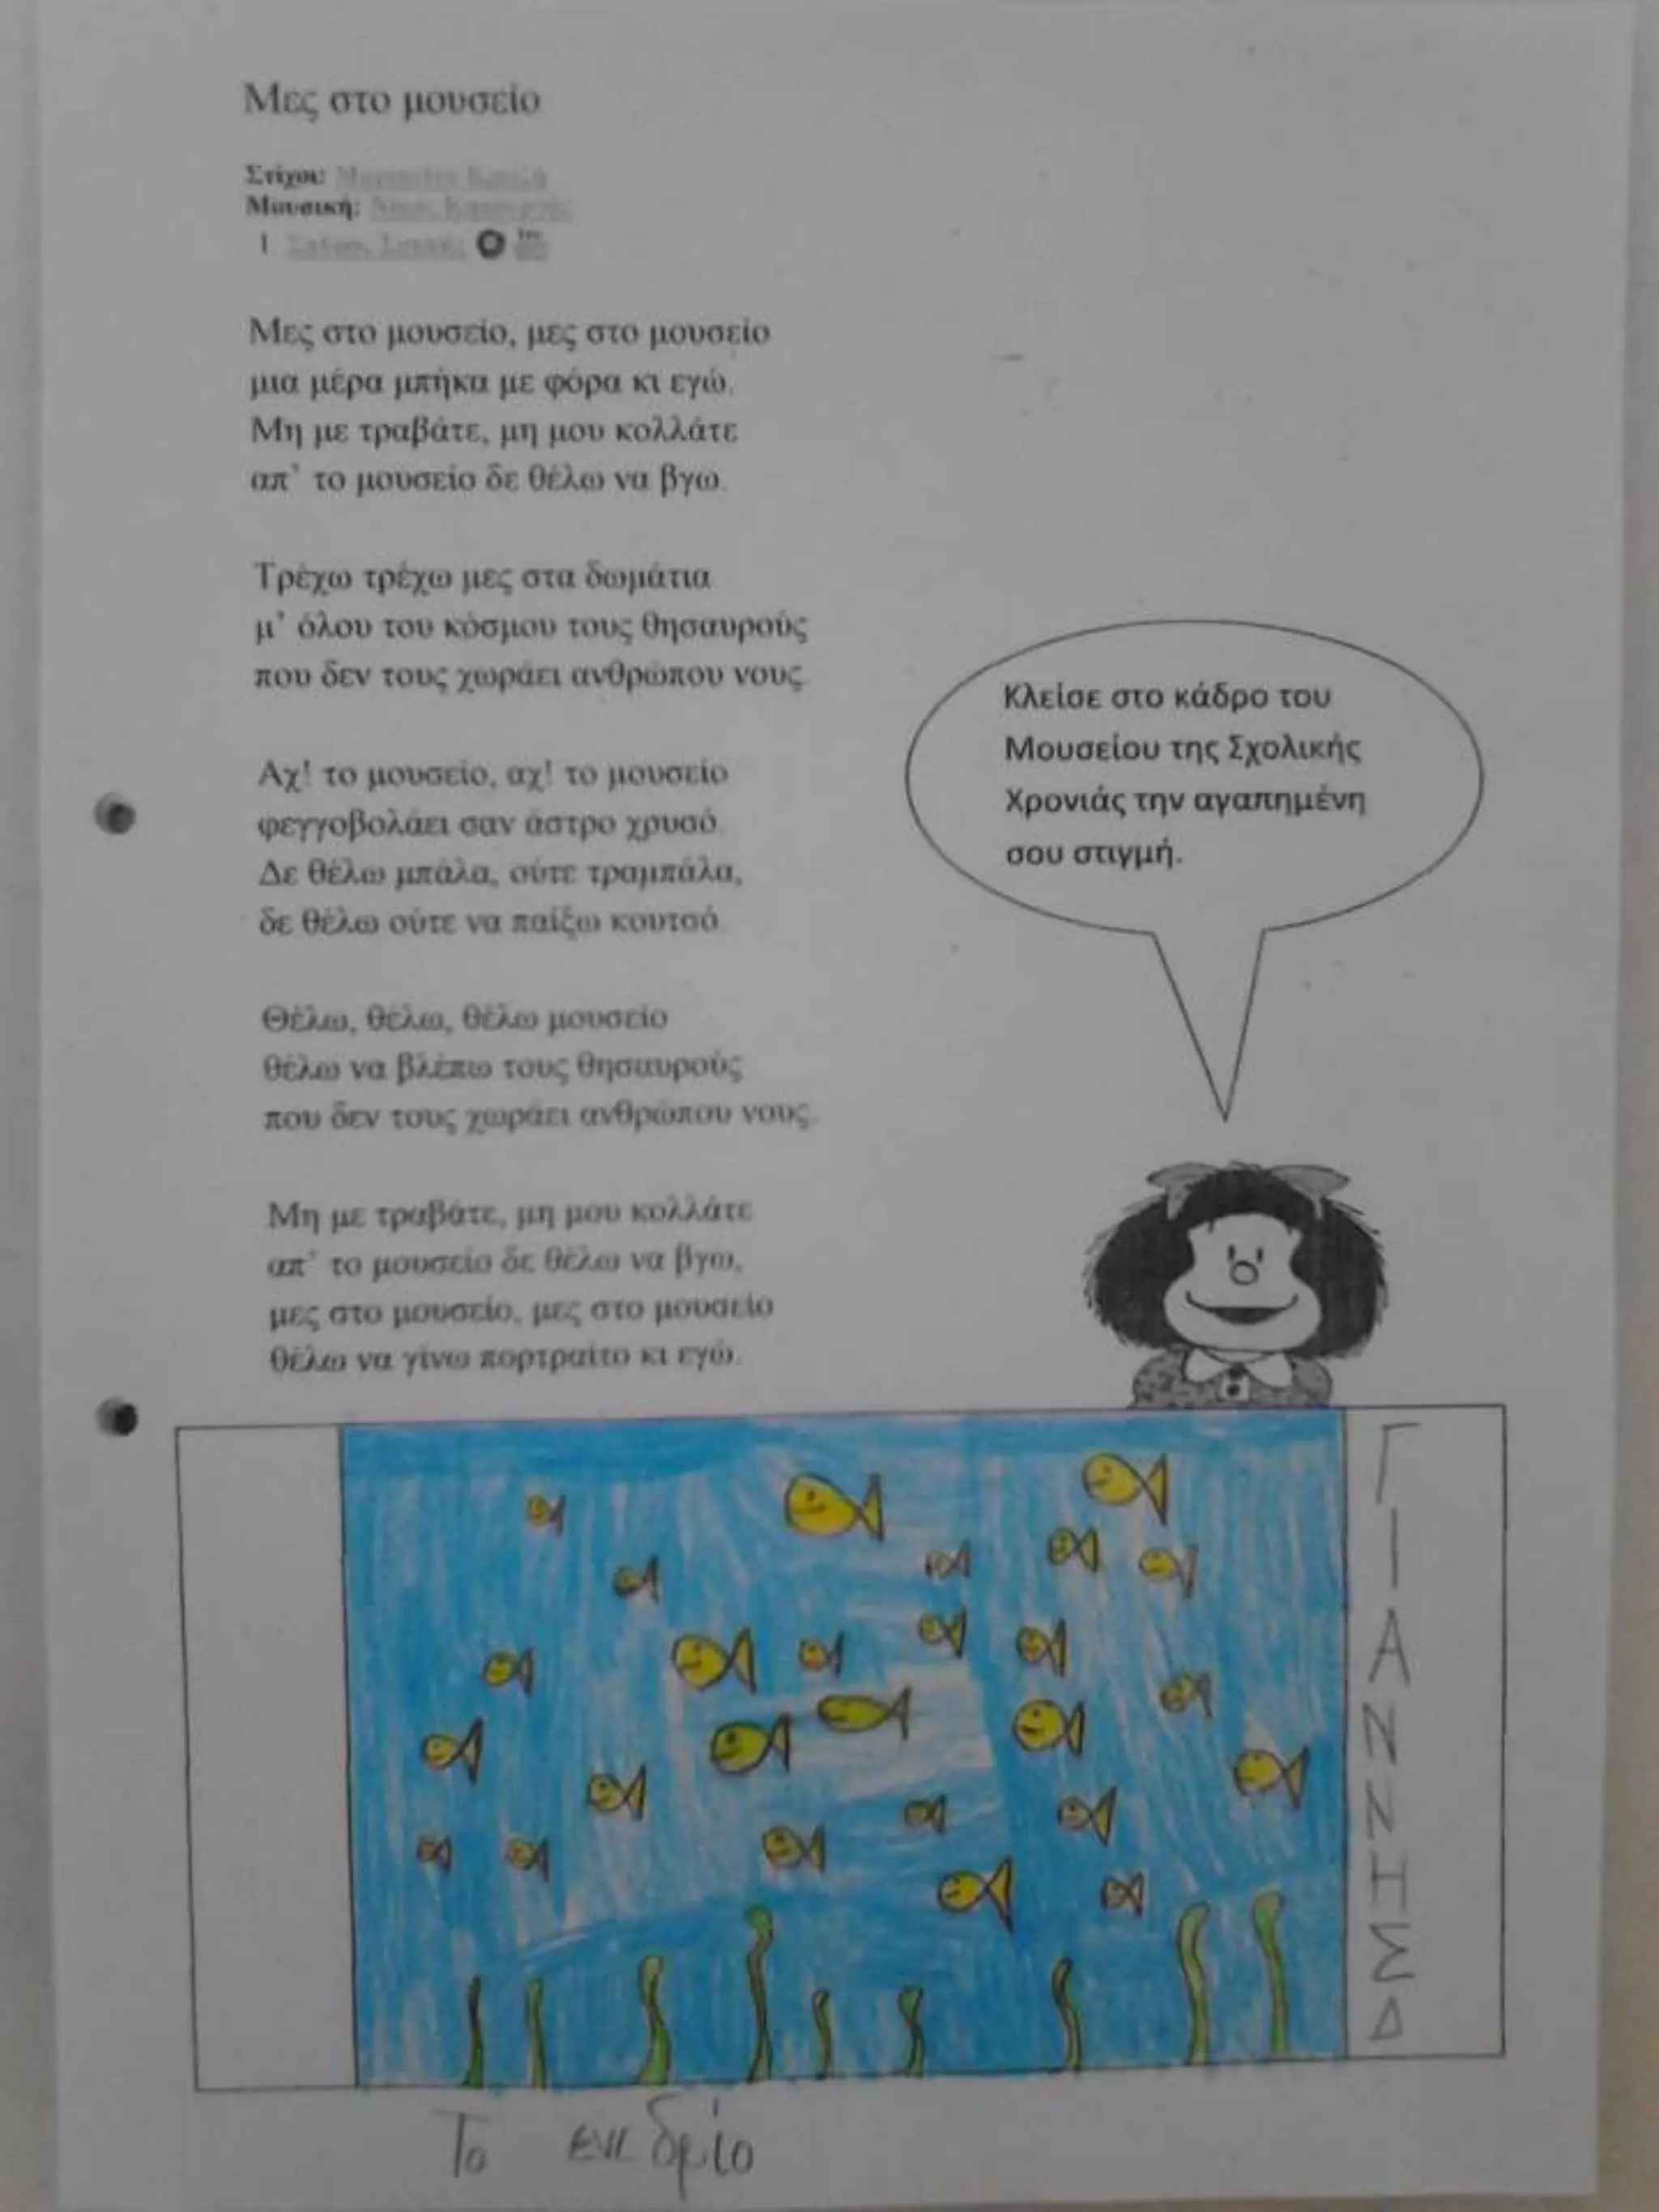 Μες στο μουσείο
Στίχοι:
Μουσική:
1
Μες στο μουσείο, μες στο μουσείο
μια μέρα μπήκα με φόρα κι εγώ.
Μη με τραβάτε, μη μου κολλάτε
απ’ το μουσείο δε θέλω να βγω.
Τρέχω τρέχω μες στα δωμάτια
μ’ όλου του κόσμου τους θησαυρούς
που δεν τους χωράει ανθρώπου νους.
Αχ! το μουσείο, αχ! το μουσείο
φεγγοβολάει σαν άστρο χρυσό.
Δε θέλω μπάλα, ούτε τραμπάλα,
δε θέλω ούτε να παίξω κουτσό.
Θέλω, θέλω, θέλω μουσείο
θέλω να βλέπω τους θησαυρούς
που δεν τους χωράει ανθρώπου νους.
Μη με τραβάτε, μη μου κολλάτε
απ’ το μουσείο δε θέλω να βγω,
μες στο μουσείο, μες στο μουσείο
θέλω να γίνω πορτραίτο κι εγώ.
Κλείσε στο κάδρο του
Μουσείου της Σχολικής
Χρονιάς την αγαπημένη
σου στιγμή.
ΓΙΑΝΝΗΣ Δ
Το